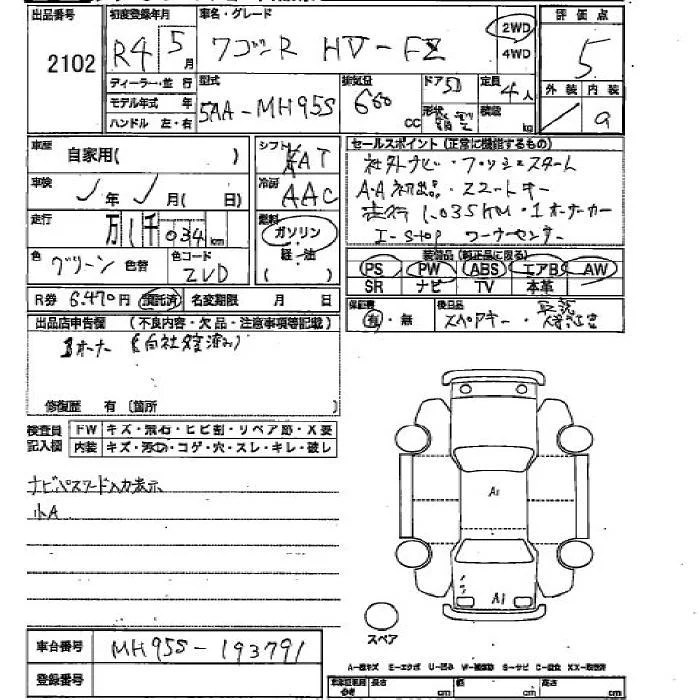 出品番号 初度登録年月 車名・グレード 2WD 評価点
2102 R4 5月 ワゴンR HV-FZ 4WD 5
ディーラー・並行 型式 排気量 ドア 5D 定員 4人 外装 内装
モデル年式 年 5AA-MH95S 660cc 形状 積載 kg / a
ハンドル 左・右
車歴 自家用( ) シフト FAT セールスポイント (正常に機能するもの)
車検 年 月( 日) 冷房 AAC 社外ナビ・プッシュスタート
A・A初出品・スマートキー
走行 万 1千 034km 燃料 ガソリン 走行1,035KM・1オーナーカー
軽・油( ) I-stop コーナーセンサー
色 グリーン 色替 色コード ZVD 装備品 (純正品に限る)
PS PW ABS エアB AW
SR ナビ TV 本革
R券 6,470円 預託済 名変期限 月 日 保証書 有・無 後日品 スペアキー・
出品店申告欄 (不良内容・欠品・注意事項等記載)
1オーナー
修復歴 有 (箇所
検査員記入欄 FW キズ・飛石・ヒビ割・リペア跡・X要
内装 キズ・汚れ・コゲ・穴・スレ・キレ・破レ
ナビパスワード入力表示
小A
A1
A1
スペア
車台番号 MH95S-193791
登録番号
A-線キズ E-エクボ U-凹み W-補修跡 S-サビ C-腐食 XX-取替済
長さ cm 幅 cm 高さ cm